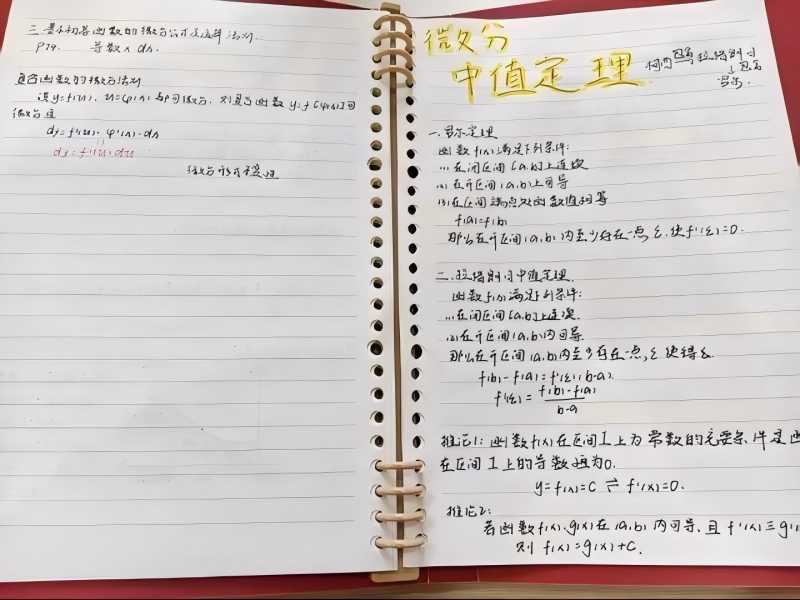 三.基本初等函数的微分公式与法则.
P74. 导数 × dx.
复合函数的微分法则
设y=f(u), u=φ(x) 均可微分, 则复合函数 y=f[φ(x)]可
微分且
dy=f'(u)·φ'(x)·dx
dy=f'(u)du
微分形式不变性
微分
中值定理
柯西 包含 拉格朗日
↓包含
罗尔.
一.罗尔定理
函数f(x)满足下列条件:
(1)在闭区间[a,b]上连续
(2)在开区间(a,b)上可导
(3)在区间端点处函数值相等
f(a)=f(b)
那么在开区间(a,b)内至少存在一点ξ,使f'(ξ)=0.
二.拉格朗日中值定理
函数f(x)满足下列条件:
(1)在闭区间[a,b]上连续.
(2)在开区间(a,b)内可导.
那么在开区间(a,b)内至少存在一点,ξ使得ξ.
f(b)-f(a)=f'(ξ)(b-a).
f'(ξ)=\frac{f(b)-f(a)}{b-a}
推论1:函数f(x)在区间I上为常数的充要条件是函
在区间I上的导数恒为0.
y=f(x)=C ⇌ f'(x)=0.
推论2:
若函数f(x),g(x)在(a,b)内可导,且f'(x)≡g'(
则 f(x)=g(x)+C.